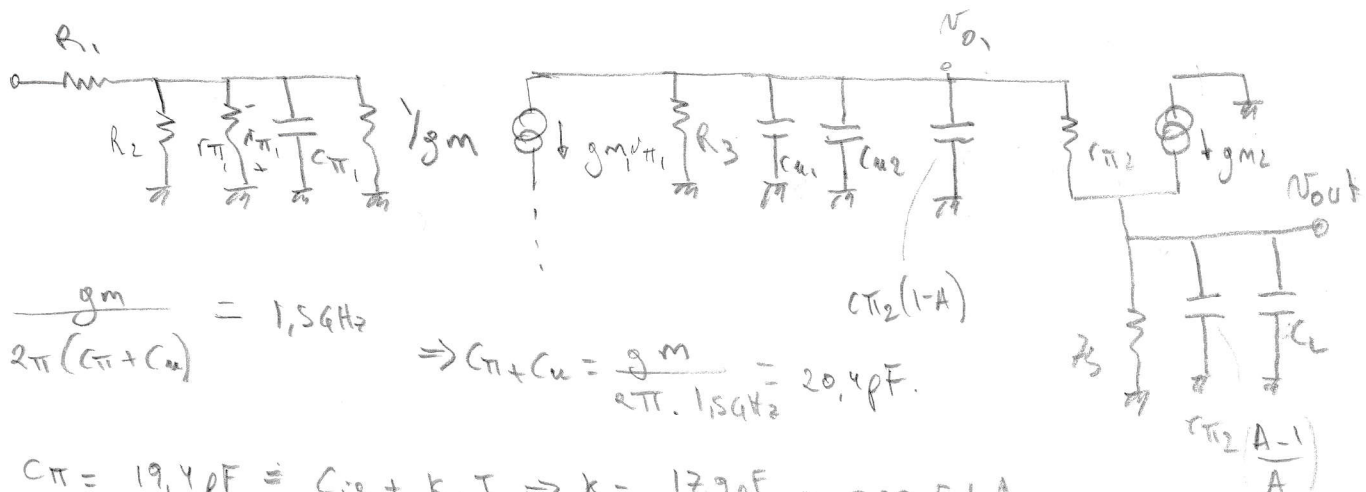 R₁
R₂
rπ₁
- vπ₁ +
Cπ₁
1/gm
gm₁vπ₁
R₃
Cu₁
Cu₂
v₀₁
rπ₂
gm₂
vout
Cπ₂(1-A)
CL
Cπ₂(A-1/A)
gm / 2π(Cπ + Cu) = 1,5GHz
=> Cπ + Cu = gm / 2π. 1,5GHz = 20,4pF.
Cπ = 19,4pF =